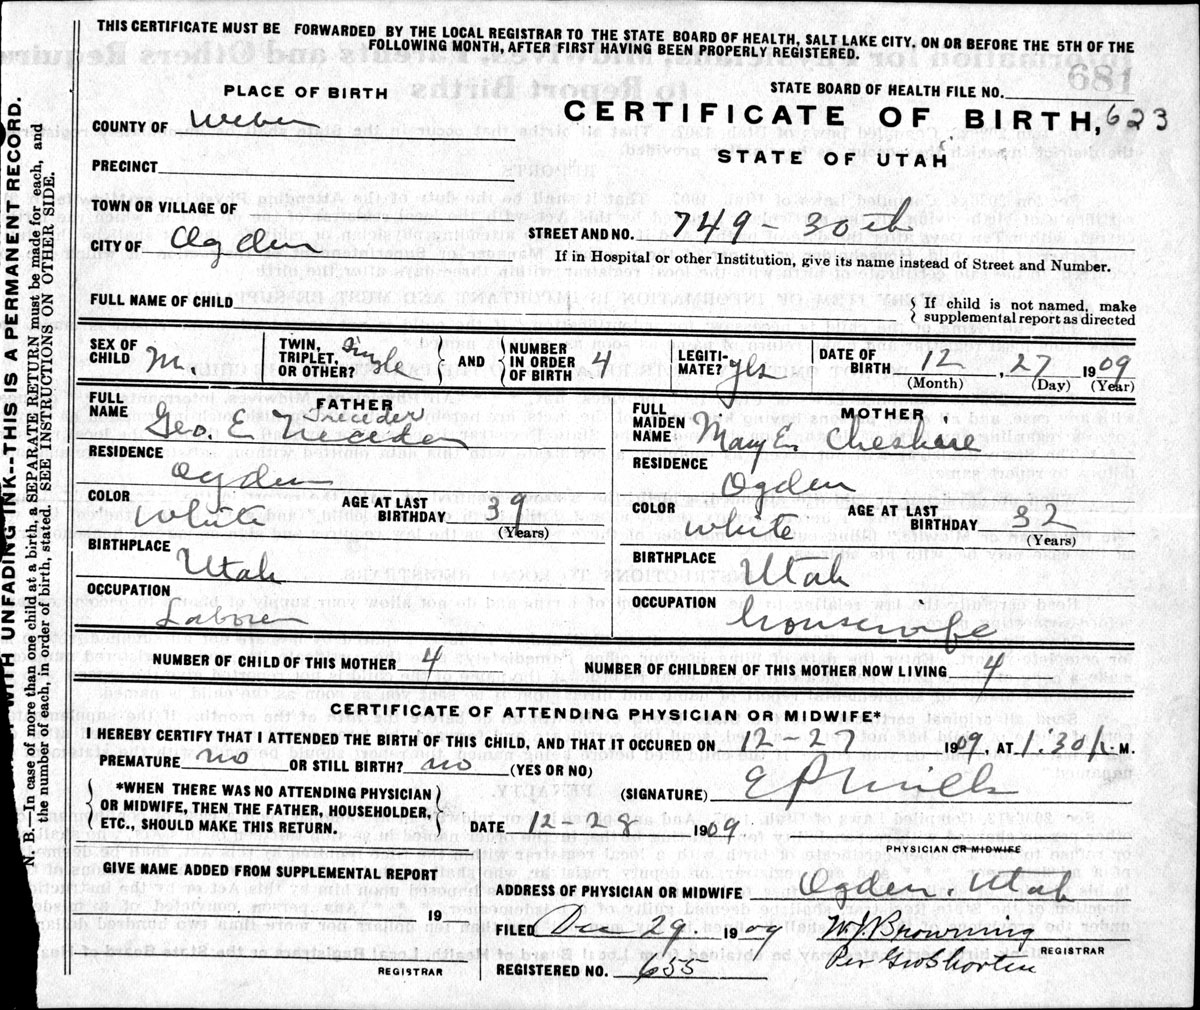 THIS CERTIFICATE MUST BE FORWARDED BY THE LOCAL REGISTRAR TO THE STATE BOARD OF HEALTH, SALT LAKE CITY, ON OR BEFORE THE 5TH OF THE
FOLLOWING MONTH, AFTER FIRST HAVING BEEN PROPERLY REGISTERED.
681
PLACE OF BIRTH
STATE BOARD OF HEALTH FILE NO.
COUNTY OF Weber
CERTIFICATE OF BIRTH, 623
STATE OF UTAH
PRECINCT
TOWN OR VILLAGE OF
CITY OF Ogden
STREET AND NO. 749-30th
If in Hospital or other Institution, give its name instead of Street and Number.
FULL NAME OF CHILD
{ If child is not named, make
{ supplemental report as directed
SEX OF CHILD M.
TWIN, TRIPLET, OR OTHER? Single } AND { NUMBER IN ORDER OF BIRTH 4
LEGITIMATE? yes
DATE OF BIRTH 12, 27 1909
(Month) (Day) (Year)
FATHER
FULL NAME Geo. E.
MOTHER
FULL MAIDEN NAME May E. Cheshire
RESIDENCE Ogden
RESIDENCE Ogden
COLOR White AGE AT LAST BIRTHDAY 39 (Years)
COLOR White AGE AT LAST BIRTHDAY 32 (Years)
BIRTHPLACE Utah
BIRTHPLACE Utah
OCCUPATION Laborer
OCCUPATION housewife
NUMBER OF CHILD OF THIS MOTHER 4
NUMBER OF CHILDREN OF THIS MOTHER NOW LIVING 4
CERTIFICATE OF ATTENDING PHYSICIAN OR MIDWIFE*
I HEREBY CERTIFY THAT I ATTENDED THE BIRTH OF THIS CHILD, AND THAT IT OCCURED ON 12-27 1909, AT 1.30 M.
PREMATURE no OR STILL BIRTH? no (YES OR NO)
{ *WHEN THERE WAS NO ATTENDING PHYSICIAN
OR MIDWIFE, THEN THE FATHER, HOUSEHOLDER,
ETC., SHOULD MAKE THIS RETURN. }
(SIGNATURE) E P Mills
DATE 12-28 1909
PHYSICIAN OR MIDWIFE
GIVE NAME ADDED FROM SUPPLEMENTAL REPORT
ADDRESS OF PHYSICIAN OR MIDWIFE Ogden, Utah
19
FILED Dec 29 1909 Browning
REGISTRAR
REGISTRAR
REGISTERED NO. 655
WITH UNFADING INK--THIS IS A PERMANENT RECORD.
N. B.--In case of more than one child at a birth, a SEPARATE RETURN must be made for each, and
the number of each, in order of birth, stated. SEE INSTRUCTIONS ON OTHER SIDE.